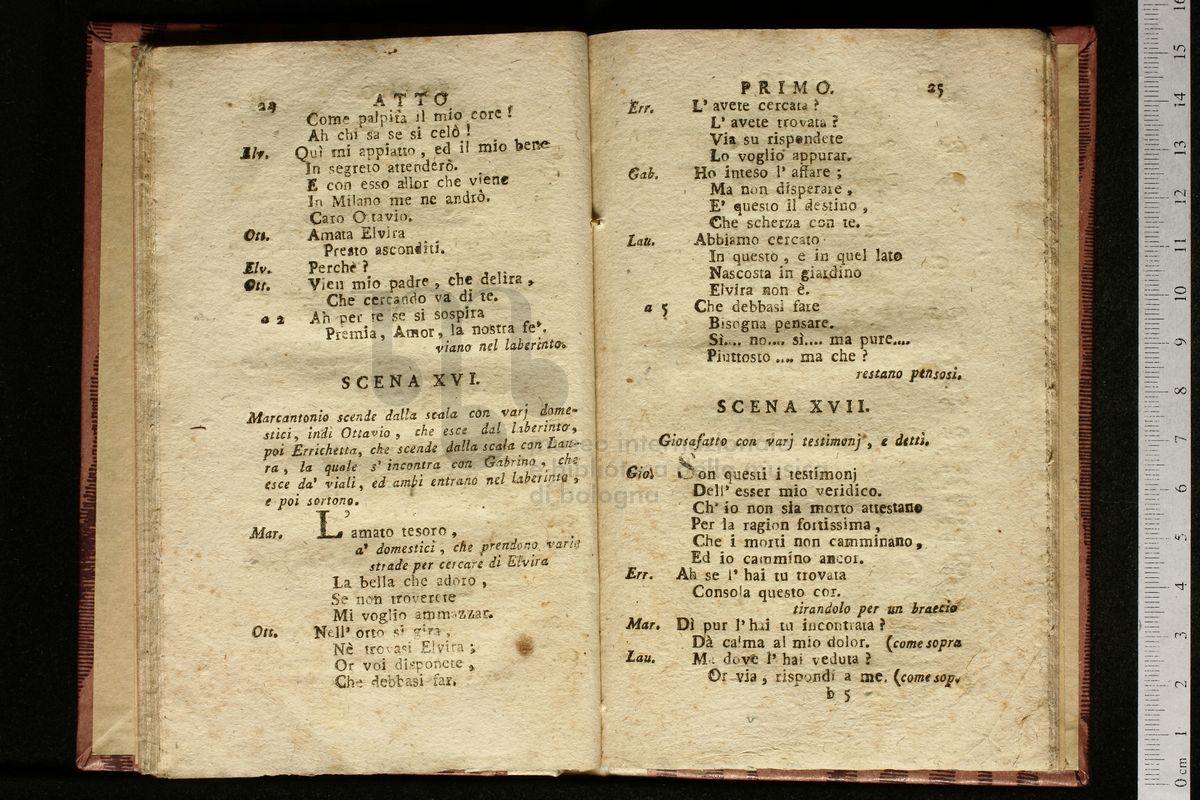 24 ATTO
Come palpita il mio core!
Ah chi sa se si celò!
Elv. Quì mi appiatto, ed il mio bene
In segreto attenderò.
E con esso allor che viene
In Milano me ne andrò.
Caro Ottavio.
Ott. Amata Elvira
Presto asconditi.
Elv. Perchè?
Ott. Vien mio padre, che delira,
Che cercando va di te.
a 2 Ah per te se si sospira
Premia, Amor, la nostra fe'.
viano nel laberinto.
SCENA XVI.
Marcantonio scende dalla scala con varj dome-
stici, indi Ottavio, che esce dal laberinto,
poi Errichetta, che scende dalla scala con Lau-
ra, la quale s' incontra con Gabrino, che
esce da' viali, ed ambi entrano nel laberinto,
e poi sortono.
Mar. L' amato tesoro,
a' domestici, che prendono varie
strade per cercare di Elvira
La bella che adoro,
Se non troverete
Mi voglio ammazzar.
Ott. Nell' orto si gira,
Nè trovasi Elvira;
Or voi disponete,
Che debbasi far.
PRIMO. 25
Err. L' avete cercata?
L' avete trovata?
Via su rispondete
Lo voglio appurar.
Gab. Ho inteso l' affare;
Ma non disperare,
E' questo il destino,
Che scherza con te.
Lau. Abbiamo cercato
In questo, e in quel lato
Nascosta in giardino
Elvira non è.
a 5 Che debbasi fare
Bisogna pensare.
Sì.... no.... sì.... ma pure....
Piuttosto .... ma che?
restano pensosi.
SCENA XVII.
Giosafatto con varj testimonj, e detti.
Gio. Son questi i testimonj
Dell' esser mio veridico.
Ch' io non sia morto attestano
Per la ragion fortissima,
Che i morti non camminano,
Ed io cammino ancor.
Err. Ah se l' hai tu trovata
Consola questo cor.
tirandolo per un braccio
Mar. Dì pur l' hai tu incontrata?
Dà calma al mio dolor. (come sopra
Lau. Ma dove l' hai veduta?
Or via, rispondi a me. (come sop.
b 5
museo internazionale
e biblioteca della musica
di bologna
0 cm 1 2 3 4 5 6 7 8 9 10 11 12 13 14 15 16